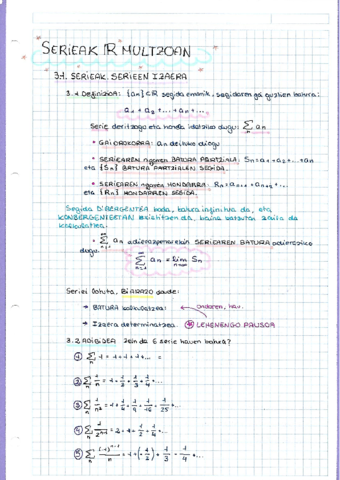 SERIEAK IR MULTZOAN
3.1. SERIEAK. SERIEEN IZAERA
3.1 Definizioa: {an} C IR segida emanik, segidaren gai guztien batura:
a1 + a2 + ... + an + ...
Serie deritzogu eta honela idatziko dugu: Σ an
• GAI OROKORRA: an deituko diogu
• SERIEAREN n garren BATURA PARTZIALA: Sn = a1 + a2 + ... + an
eta {Sn} BATURA PARTZIALEN SEGIDA.
• SERIEAREN n garren HONDARRA: Rn = an+1 + an+2 + ...
eta {Rn} HONDARREN SEGIDA.
Segida DIBERGENTEA bada, batura infinitua da, eta
KONBERGENTEETAN
kalkulatzea.
• Σ an adierazpenarekin SERIEAREN BATURA adieraziko
dugu.
Σ an = lim Sn
n→∞
Serie batuta, BI ARAZO daude:
→ BATURA kalkulatzea ondoren, hau.
→ Izaera determinatzea LEHENENGO PAUSOA
3.2 ADIBIDEA Zein da 6 serie hauen batura?
① Σ 1 = 1 + 1 + 1 + ... =
② Σ 1/n = 1 + 1/2 + 1/3 + 1/4 + ...
③ Σ 1/n² = 1 + 1/4 + 1/16 + 1/25 + ...
④ Σ 1/2ⁿ⁻¹ = 1 + 1/2 + 1/4 + ...
⑤ Σ (-1)ⁿ⁻¹/n = 1 + (-1/2) + 1/3 - 1/4 + ...